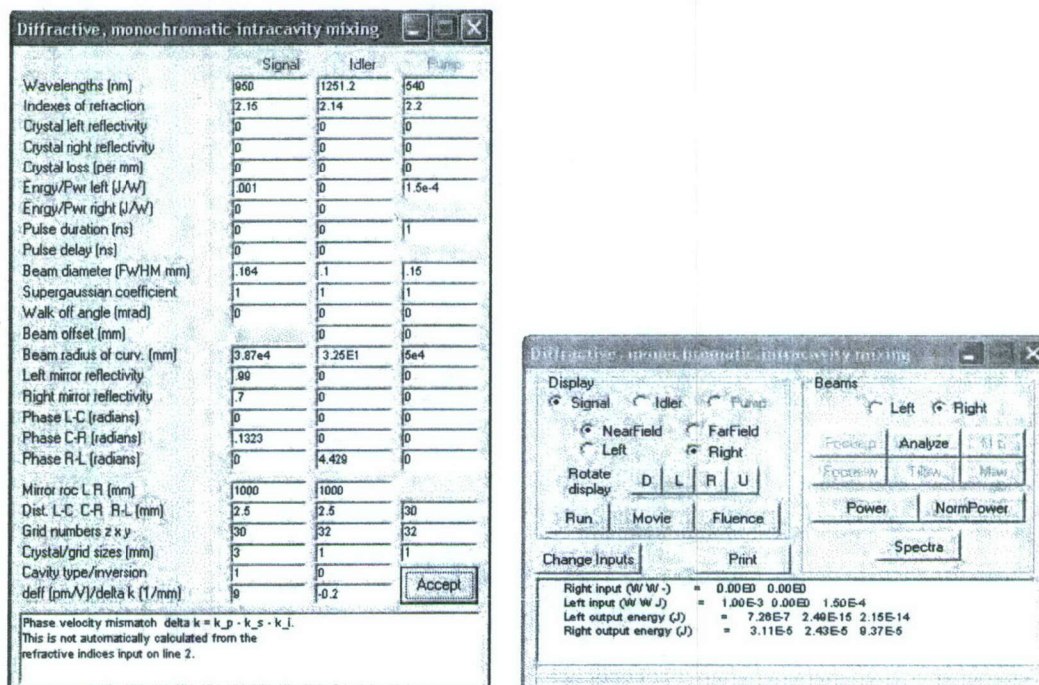 Diffractive, monochromatic intracavity mixing
Signal Idler Pump
Wavelengths (nm) 950 1251.2 540
Indexes of refraction 2.15 2.14 2.2
Crystal left reflectivity 0 0 0
Crystal right reflectivity 0 0 0
Crystal loss (per mm) 0 0 0
Enrgy/Pwr left (J/W) .001 0 1.5e-4
Enrgy/Pwr right (J/W) 0 0
Pulse duration (ns) 0 0 1
Pulse delay (ns) 0 0
Beam diameter (FWHM mm) .164 .1 .15
Supergaussian coefficient 1 1 1
Walk off angle (mrad) 0 0 0
Beam offset (mm) 0 0
Beam radius of curv. (mm) 3.87e4 3.25E1 5e4
Left mirror reflectivity .99 0 0
Right mirror reflectivity .7 0 0
Phase L-C (radians) 0 0 0
Phase C-R (radians) .1323 0 0
Phase R-L (radians) 0 4.429 0
Mirror roc L R (mm) 1000 1000
Dist. L-C C-R R-L (mm) 2.5 2.5 30
Grid numbers z x y 30 32 32
Crystal/grid sizes (mm) 3 1 1
Cavity type/inversion 1 0
deff (pm/V)/delta k (1/mm) 9 -0.2
Accept
Phase velocity mismatch delta k = k_p - k_s - k_i.
This is not automatically calculated from the
refractive indices input on line 2.
Diffractive, monochromatic intracavity mixing
Display
Signal Idler Pump
NearField FarField
Left Right
Rotate display D L R U
Run Movie Fluence
Beams
Left Right
Analyze
Power NormPower
Spectra
Change Inputs Print
Right input (W W -) = 0.00E0 0.00E0
Left input (W W J) = 1.00E-3 0.00E0 1.50E-4
Left output energy (J) = 7.26E-7 2.49E-15 2.15E-14
Right output energy (J) = 3.11E-5 2.43E-5 9.37E-5